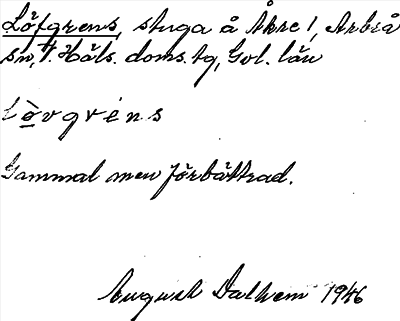 Löfgrens, stuga å Åkre 1, Arbrå
sn, V. Häls. doms. tg, Gvl. län
Lòvgréns
Gammal men förbättrad.
August Dalhem 1946